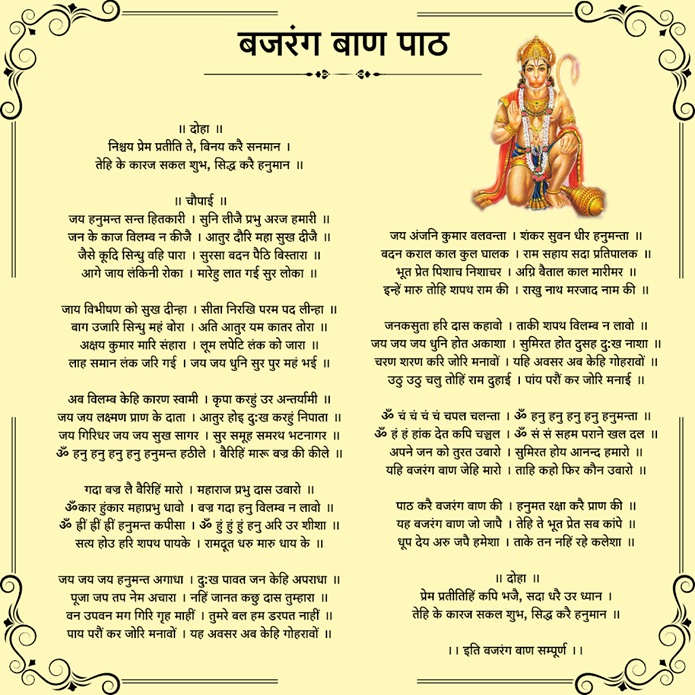 बजरंग बाण पाठ
॥ दोहा ॥
निश्चय प्रेम प्रतीति ते, बिनय करै सनमान ।
तेहि के कारज सकल शुभ, सिद्ध करै हनुमान ॥
॥ चौपाई ॥
जय हनुमन्त सन्त हितकारी । सुनि लीजै प्रभु अरज हमारी ॥
जन के काज विलम्ब न कीजै । आतुर दौरि महा सुख दीजै ॥
जैसे कूदि सिन्धु वहि पारा । सुरसा बदन पैठि बिस्तारा ॥
आगे जाय लंकिनी रोका । मारेहु लात गई सुर लोका ॥
जाय विभीषण को सुख दीन्हा । सीता निरखि परम पद लीन्हा ॥
बाग उजारि सिन्धु महं बोरा । अति आतुर यम कातर तोरा ॥
अक्षय कुमार मारि संहारा । लूम लपेटि लंक को जारा ॥
लाह समान लंक जरि गई । जय जय धुनि सुर पुर महं भई ॥
अब विलम्ब केहि कारण स्वामी । कृपा करहुं उर अन्तर्यामी ॥
जय जय लक्ष्मण प्राण के दाता । आतुर होइ दु:ख करहुं निपाता ॥
जय गिरिधर जय जय सुख सागर । सुर समूह समरथ भटनागर ॥
ॐ हनु हनु हनु हनु हनुमन्त हठीले । वैरिहिं मारू बज्र की कीले ॥
गदा बज्र लै वैरिहिं मारो । महाराज प्रभु दास उबारो ॥
ॐकार हुंकार महाप्रभु धावो । बज्र गदा हनु विलम्ब न लावो ॥
ॐ ह्रीं ह्रीं ह्रीं हनुमन्त कपीसा । ॐ हुं हुं हुं हनु अरि उर शीशा ॥
सत्य होउ हरि शपथ पायके । रामदूत धरु मारु धाय के ॥
जय जय जय हनुमन्त अगाधा । दु:ख पावत जन केहि अपराधा ॥
पूजा जप तप नेम अचारा । नहिं जानत कछु दास तुम्हारा ॥
वन उपवन मग गिरि गृह माहीं । तुमरे बल हम डरपत नाहीं ॥
पाय परौं कर जोरि मनावों । यह अवसर अब केहि गोहरावों ॥
जय अंजनि कुमार बलवन्ता । शंकर सुवन धीर हनुमन्ता ॥
बदन कराल काल कुल घालक । राम सहाय सदा प्रतिपालक ॥
भूत प्रेत पिशाच निशाचर । अग्नि वैताल काल मारीमर ॥
इन्हें मारु तोहि शपथ राम की । राखु नाथ मरजाद नाम की ॥
जनकसुता हरि दास कहावो । ताकी शपथ विलम्ब न लावो ॥
जय जय जय धुनि होत अकाशा । सुमिरत होत दुसह दु:ख नाशा ॥
चरण शरण करि जोरि मनावों । यहि अवसर अब केहि गोहरावों ॥
उठु उठु चलु तोहिं राम दुहाई । पांय परौं कर जोरि मनाई ॥
ॐ चं चं चं चं चपल चलन्ता । ॐ हनु हनु हनु हनु हनुमन्ता ॥
ॐ हं हं हांक देत कपि चञ्चल । ॐ सं सं सहम पराने खल दल ॥
अपने जन को तुरत उबारो । सुमिरत होय आनन्द हमारो ॥
यहि बजरंग बाण जेहि मारो । ताहि कहो फिर कौन उबारो ॥
पाठ करै बजरंग बाण की । हनुमत रक्षा करै प्राण की ॥
यह बजरंग बाण जो जापै । तेहि ते भूत प्रेत सब कांपे ॥
धूप देय अरु जपै हमेशा । ताके तन नहिं रहे कलेशा ॥
॥ दोहा ॥
प्रेम प्रतीतिहिं कपि भजै, सदा धरै उर ध्यान ।
तेहि के कारज सकल शुभ, सिद्ध करै हनुमान ॥
।। इति बजरंग बाण सम्पूर्ण ।।